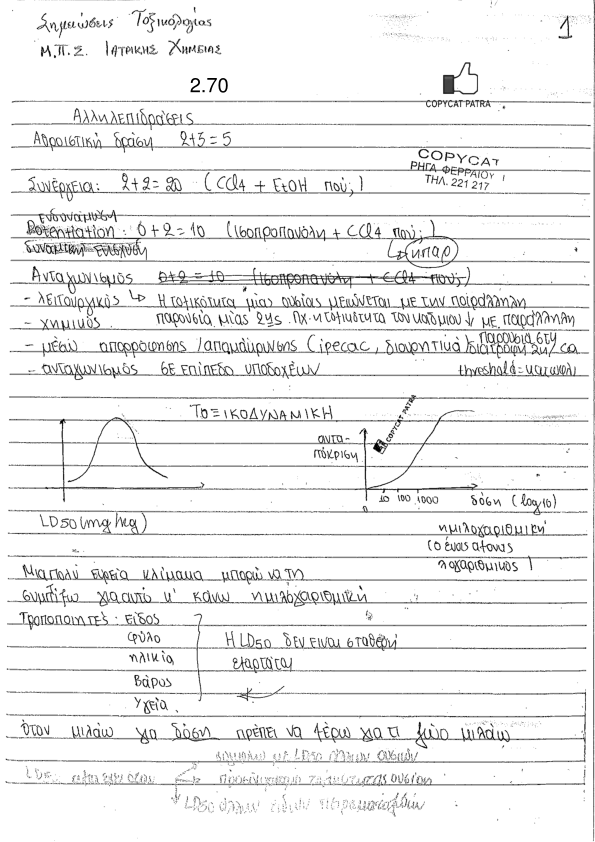 Σημειώσεις Τοξικολογίας
1
Μ.Π.Σ. ΙΑΤΡΙΚΗΣ ΧΗΜΕΙΑΣ
2.70
COPYCAT PATRA
Αλληλεπιδράσεις
Αθροιστική δράση 2+3=5
COPYCAT
ΡΗΓΑ ΦΕΡΡΑΙΟΥ 1
ΤΗΛ. 221 217
Συνέργεια: 2+2=20 (CCl4 + EtOH πού;)
Ενδυνάμωση
Potentiation: 0+2=10 (Ισοπροπανόλη + CCl4 πού;)
ήπαρ
Ανταγωνισμός 0+2=10 (Ισοπροπανόλη + CCl4 πού;)
- λειτουργικός ↳ Η τοξικότητα μίας ουσίας μειώνεται με την παράλληλη
- χημικός παρουσία μίας 2ης. Πχ. η τοξικότητα του καδμίου ↓ με παράλληλη
παρουσία στη
- μέσω απορρόφησης/απομάκρυνσης (ipecac, διουρητικά) διατροφή Zn/Ca
- ανταγωνισμός σε επίπεδο υποδοχέων threshold = κατώφλι
ΤΟΞΙΚΟΔΥΝΑΜΙΚΗ
COPYCAT PATRA
αντα-
πόκριση
0 10 100 1000 δόση (log10)
LD50 (mg/kg)
ημιλογαριθμική
(ο ένας άξονας
λογαριθμικός)
Μια πολύ ευρεία κλίμακα μπορώ να τη
συμπτύξω για αυτό κ' κάνω ημιλογαριθμική
Τροποποιητές: Είδος
φύλο Η LD50 δεν είναι σταθερή
ηλικία εξαρτάται
Βάρος
Υγεία.
όταν μιλάω για δόση πρέπει να ξέρω για τι ζώο μιλάω
LD50 άλλων ουσιών
LD50
LD50 άλλων ειδών πειραματοζώων